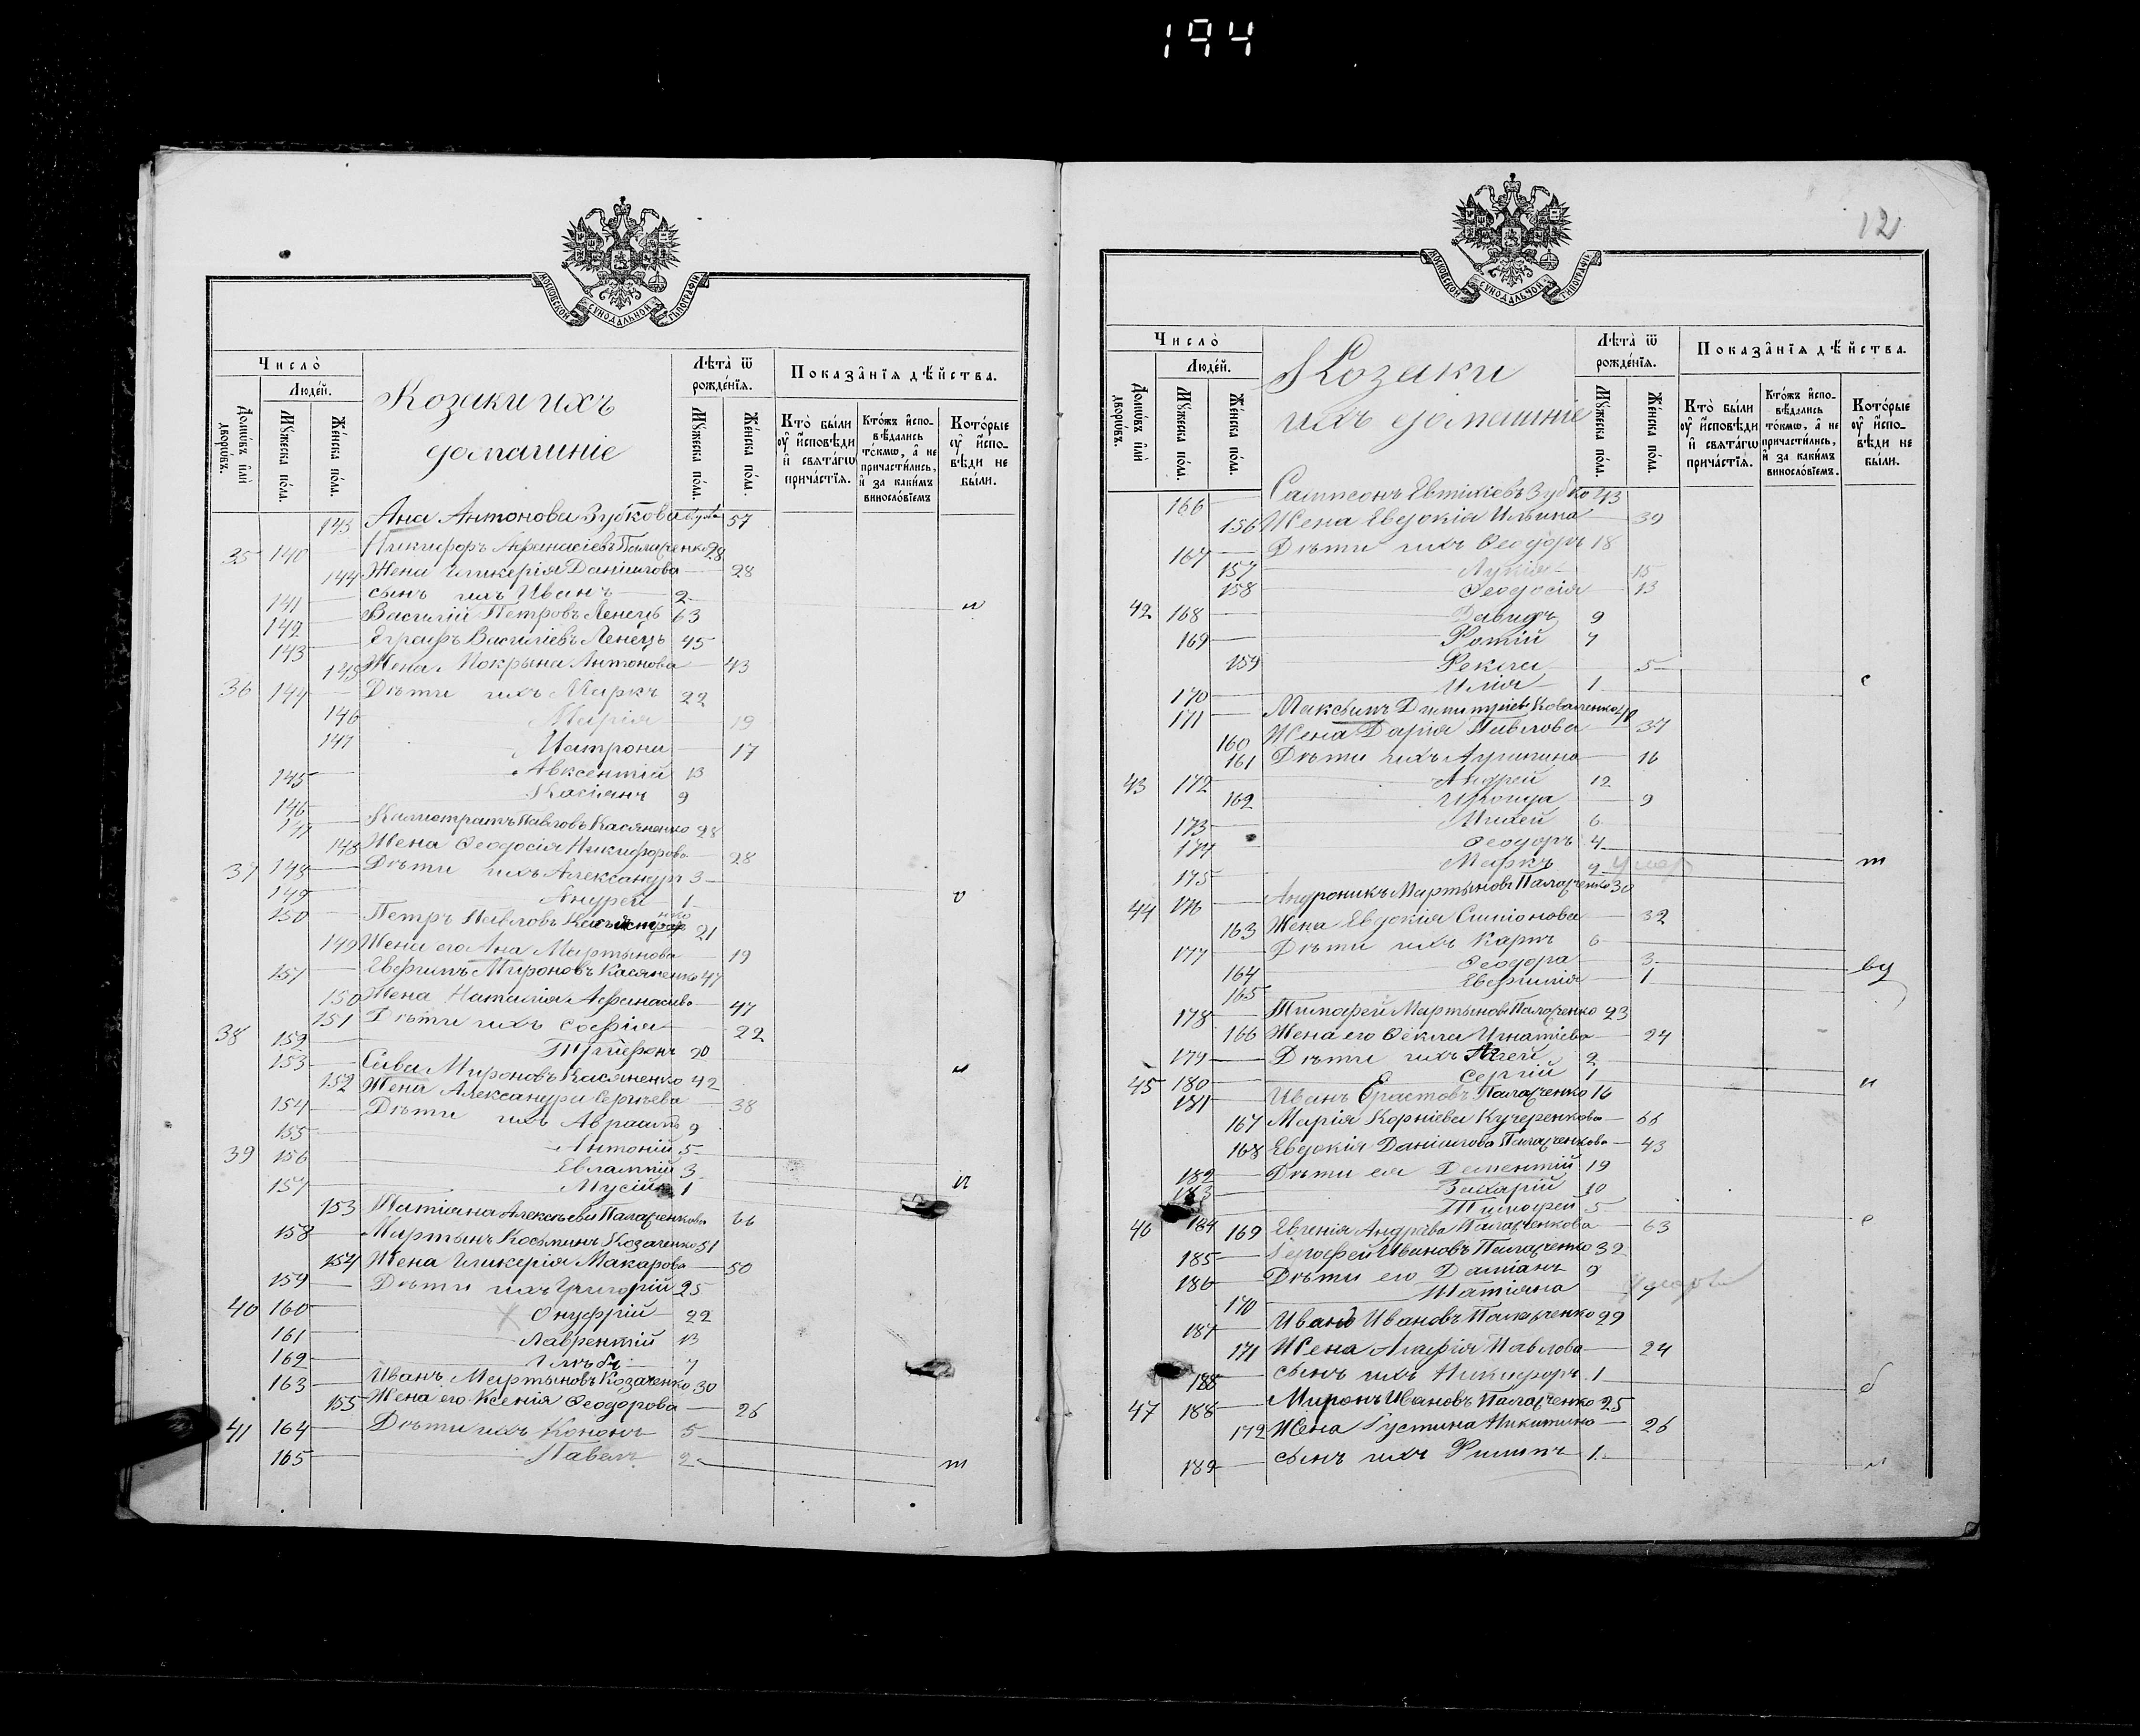 194
МОСКОВСКОЙ СѴНОДАЛЬНОЙ ТѴПОГРАФІИ
Число̀
Люде́й.
Домѡ́въ и҆лѝ дворѡ́въ.
Мꙋ́жеска по́ла.
Же́нска по́ла.
Козаки ихъ
домашніе
Лѣта̀ ѿ рожде́нїѧ.
Мꙋ́жеска по́ла.
Же́нска по́ла.
Показа̑нїѧ дѣ́йства.
Кто̀ бы́ли оу҆ и҆сповѣ́ди и҆ свѧта́гѡ прича́стїѧ.
Кто́жъ и҆сповѣ́дались то́кмѡ, а҆ не причасти́лись, и҆ за каки́мъ винosло́вїемъ
Кото́рые оу҆ и҆сповѣ́ди не бы́ли.
143 Ана Антонова Зубкова вдова 57
35 140 Никифоръ Афанасіевъ Паларенко 28
144 Жена Гликерія Даніилова 28
141 сынъ ихъ Иванъ 2
142 Василій Петровъ Ленецъ 63
143 Еграфъ Василіевъ Ленецъ 45
145 Жена Мокрына Антонова 43
36 144 Дѣти ихъ Маркъ 22
146 Марія 19
147 Матрона 17
145 Авксентій 13
146 Касіянъ 9
147 Калистратъ Павловъ Касяненко 28
148 Жена Ѳеодосія Никифорова 28
37 148 Дѣти ихъ Александръ 3
149 Андрей 1
150 Петръ Павловъ 21
149 Жена его Ана Мартынова 19
151 Евфимъ Мироновъ Касяненко 47
150 Жена Наталія Афанасіева 47
151 Дѣти ихъ Софія 22
38 152 Трифонъ 20
153 Сава Мироновъ Касяненко 42
152 Жена Александра Сергѣева 38
154 Дѣти ихъ Авраамъ 9
155 Антоній 5
39 156 Евлампій 3
157 Мусій 1
153 Татіана Алексѣева Паларенкова 66
158 Мартынъ Косьминъ Козаченко 51
154 Жена Гликерія Макарова 50
159 Дѣти ихъ Григорій 25
40 160 Онуфрій 22
161 Лаврентій 13
162 Глѣбъ 7
163 Иванъ Мартыновъ Козаченко 30
155 Жена его Ксенія Ѳеодорова 26
41 164 Дѣти ихъ Кононъ 5
165 Павелъ 2 т
12
МОСКОВСКОЙ СѴНОДАЛЬНОЙ ТѴПОГРАФІИ
Число̀
Люде́й.
Домѡ́въ и҆лѝ дворѡ́въ.
Мꙋ́жеска по́ла.
Же́нска по́ла.
Козаки
ихъ домашніе
Лѣта̀ ѿ рожде́нїѧ.
Мꙋ́жеска по́ла.
Же́нска по́ла.
Показа̑нїѧ дѣ́йства.
Кто̀ бы́ли оу҆ и҆сповѣ́ди и҆ свѧта́гѡ прича́стїѧ.
Кто́жъ и҆сповѣ́дались то́кмѡ, а҆ не причасти́лись, и҆ за каки́мъ винosло́вїемъ.
Кото́рые оу҆ и҆сповѣ́ди не бы́ли.
166 Сампсонъ Евтихіевъ Зубко 43
156 Жена Евдокія Ильина 39
167 Дѣти ихъ Ѳеодоръ 18
157 Лукія 15
158 Ѳеодосія 13
42 168 Давидъ 9
169 Фотій 7
159 Фекла 5
170 Илія 1 с
171 Максимъ Димитріевъ Коваленко 40
160 Жена Дарія Павлова 37
161 Дѣти ихъ Агрипина 16
43 172 Андрей 12
162 Ираида 9
173 Михей 6
174 Ѳеодоръ 4 т
175 Маркъ 2 умер
44 176 Андроникъ Мартыновъ Паларенко 30
163 Жена Евдокія Симіонова 32
177 Дѣти ихъ Карпъ 6
164 Ѳеодора 3
165 Евфимія 1
178 Тимофей Мартыновъ Паларенко 23
166 Жена его Ѳекла Игнатіева 24
179 Дѣти ихъ Агей 2
45 180 Сергій 1 и
181 Иванъ Ерастовъ Паларенко 16
167 Марія Корніева Кучеренкова 66
168 Евдокія Даніилова Паларенкова 43
182 Дѣти ея Дементій 19
183 Захарій 10
46 184 Тимофей 5
169 Евгенія Андрѣева Паларенкова 63
185 Иван­овъ Паларенко 32
186 Дѣти его Даміанъ 9
170 Татіяна 4
187 Иванъ Ивановъ Паларенко 29
171 Жена Агафія Павлова 24
188 сынъ ихъ Никифоръ 1 б
47 188 Миронъ Ивановъ Паларенко 25
172 Жена Густина Никитина 26
189 сынъ ихъ Филипъ 1